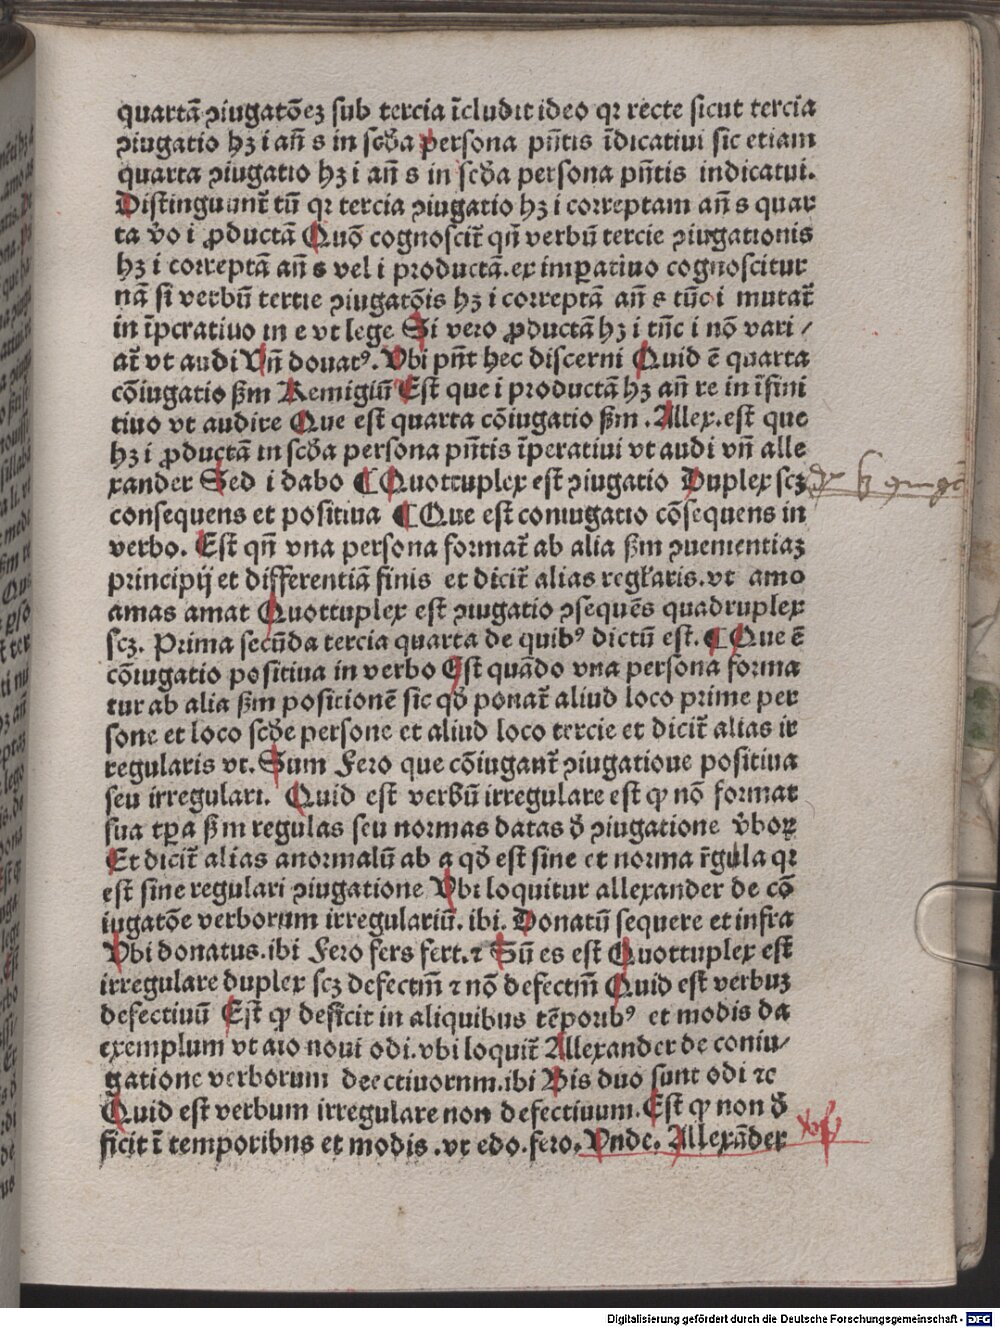 quartā ꝯiugatōeꝫ sub tercia īcludit ideo qꝛ recte sicut tercia
ꝯiugatio hꝫ i an̄ s in scd̄a persona pn̄tis īdicatiui sic etiam
quarta ꝯiugatio hꝫ i an̄ s in scd̄a persona pn̄tis indicatui.
Distinguunt̄ tn̄ qꝛ tercia ꝯiugatio hꝫ i correptam an̄ s quar
ta v̄o i ꝓductā Quō cognoscit̄ qn̄ verbū tercie ꝯiugationis
hꝫ i correptā an̄ s vel i productā. ex imꝑatiuo cognoscitur
nā si verbū tertie ꝯiugatōis hꝫ i correptā an̄ s tūc i mutat̄
in īperatiuo in e vt lege Si vero ꝓductā hꝫ i tn̄c i nō vari /
at̄ vt audi Vn̄ donatꝰ. Vbi pn̄t hec discerni Quid ē quarta
cōiugatio ẞm Remigiū Est que i productā hꝫ an̄ re in īfini
tiuo vt audire Que est quarta cōiugatio ẞm . Allex. est que
hꝫ i ꝓductā in scd̄a persona pn̄tis īperatiui vt audi vn̄ alle
xander Sed i dabo ¶ Quottuplex est ꝯiugatio Duplex scꝫ
consequens et positiua ¶ Que est coniugatio cōsequens in
verbo. Est qn̄ vna persona format̄ ab alia ẞm ꝯuenientiaꝫ
principij et differentiā finis et dicit̄ alias regl̄aris. vt amo
amas amat Quottuplex est ꝯiugatio ꝯsequēs quadruplex
scꝫ. Prima secūda tercia quarta de quibꝰ dictū est. ¶ Que ē
cōiugatio positiua in verbo Est quādo vna persona forma
tur ab alia ẞm positionē sic qd̄ ponat̄ aliud loco prime per
sone et loco scd̄e persone et aliud loco tercie et dicit̄ alias ir
regularis vt. Sum Fero que cōiugant̄ ꝯiugatione positiua
seu irregulari. Quid est verbū irregulare est ꝙ nō format
sua tꝑa ẞm regulas seu normas datas d̄ ꝯiugatione v̄boꝝ
Et dicit̄ alias anormalū ab a qd̄ est sine et norma r̄gula qꝛ
est sine regulari ꝯiugatione Vbi loquitur allexander de cō
iugatōe verborum irregulariū. ibi. Donatū sequere et infra
Vbi donatus. ibi Fero fers fert. ⁊ Sū es est Quottuplex est
irregulare duplex scꝫ defectm̄ ⁊ nō defectm̄ Quid est verbuꝫ
defectiuū Est ꝙ deficit in aliquibus tēporibꝰ et modis da
exemplum vt aio noui odi. vbi loquit̄ Allexander de coniu/
gatione verborum deectiuornm. ibi Bis duo sunt odi ⁊c
Quid est verbum irregulare non defectiuum. Est ꝙ non d̄
ficit ī temporibns et modis . vt edo. fero. Vnde. Allexāder
Digitalisierung gefördert durch die Deutsche Forschungsgemeinschaft - DFG